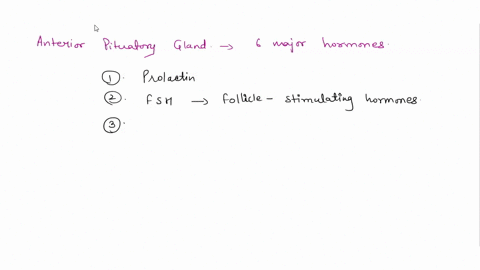 Anterior Pituatory Gland → 6 major hormones.
1. Prolactin
2. FSH → Follicle - stimulating hormones.
3.